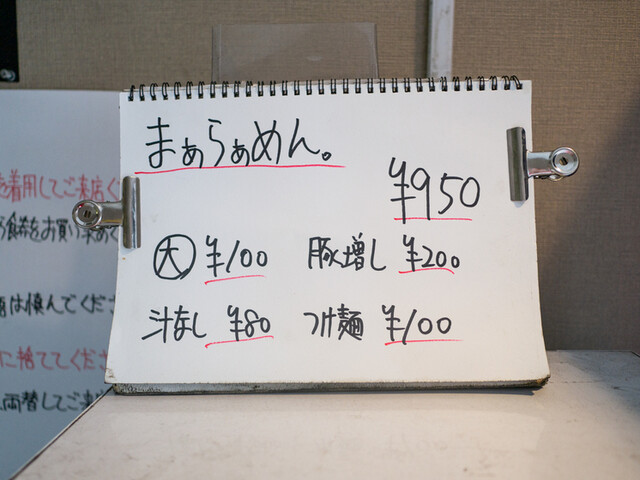 まぁらぁめん。
¥950
大 ¥100 豚増し ¥200
汁なし ¥80 つけ麺 ¥100
着用してご来店く
食券をお買い求めく
は慎んでくださ
に捨ててくださ
両替してご来